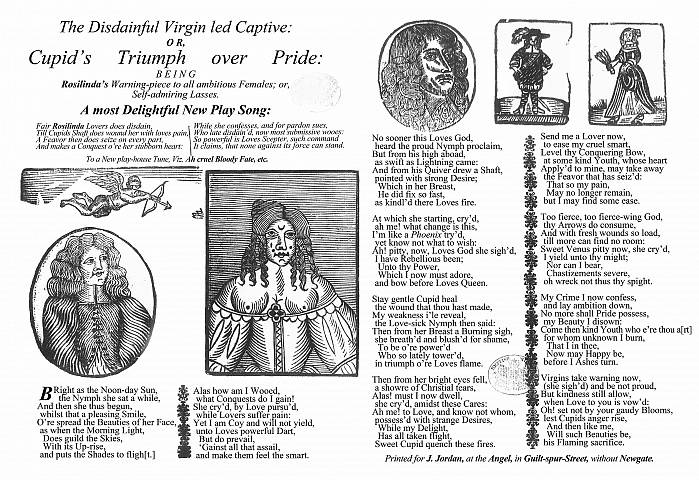 The Disdainful Virgin led Captive:
OR,
Cupid's Triumph over Pride:
BEING
Rosilinda's Warning-piece to all ambitious Females; or,
Self-admiring Lasses.
A most Delightful New Play Song:
Fair Rosilinda Lovers does disdain,
Till Cupids Shaft does wound her with loves pain,
A Feavor then does seize on every part,
And makes a Conquest o're her stubborn heart:
While she confesses, and for pardon sues,
Who late disdain'd, now most submissive wooes:
So powerful is Loves Scepter, such Conquest
It claims, that none against its force can stand.
To a New play-house Tune, Viz. Ah cruel Bloody Fate, etc.
BRight as the Noon-day Sun,
the Nymph she sat a while,
And then she thus begun,
whilst that a pleasing Smile,
O're spread the Beauties of her Face,
as when the Morning Light,
Does guild the Skies,
With its Up-rise,
and puts the Shades to fligh[t.]
Alas how am I Wooed,
what Conquests do I gain!
She cry'd, by Love pursu'd,
while Lovers suffer pain:
Yet I am Coy and will not yield,
unto Loves powerful Dart,
But do prevail,
'Gainst all that assail,
and make them feel the smart.
No sooner this Loves God,
heard the proud Nymph proclaim,
But from his high aboad,
as swift as Lightning came:
And from his Quiver drew a Shaft,
pointed with strong Desire;
Which in her Breast,
He did fix so fast,
as kindl'd there Loves fire.
At which she starting, cry'd,
ah me! what change is this,
I'm like a Phoenix try'd,
yet know not what to wish:
Ah! pitty, now, Loves God she sigh'd,
I have Rebellious been;
Unto thy Power,
Which I now must adore,
and bow before Loves Queen.
Stay gentle Cupid heal
the wound that thou hast made,
My weakness i'le reveal,
the Love-sick Nymph then said:
Then from her Breast a Burning sigh,
she breath'd and blush'd for shame,
To be o're power'd
Who so lately tower'd,
in triumph o're Loves flame.
Then from her bright eyes fell,
a showre of Christial tears,
Alas! must I now dwell,
she cry'd, amidst these Cares:
Ah me! to Love, and know not whom,
possess'd with strange Desires,
While my Delight,
Has all taken flight,
Sweet Cupid quench these fires.
Send me a Lover now,
to ease my cruel smart,
Level thy Conquering Bow,
at some kind Youth, whose heart
Apply'd to mine, may take away
the Feavor that has seiz'd:
That so my pain,
May no longer remain,
but I may find some ease.
Too fierce, too fierce-wing God,
thy Arrows do consume,
And with fresh wounds so load,
till more can find no room:
Sweet Venus pitty now, she cry'd,
I yield unto thy might;
Nor can I bear,
Chastizements severe,
oh wreck not thus thy spight.
My Crime I now confess,
and lay ambition down,
No more shall Pride possess,
my Beauty I disown:
Come then kind Youth who e're thou a[rt]
for whom unknown I burn,
That I in thee,
Now may Happy be,
before I Ashes turn.
Virgins take warning now,
(she sigh'd) and be not proud,
But kindness still allow,
when Love to you is vow'd:
Oh! set not by your gaudy Blooms,
lest Cupids anger rise,
And then like me,
Will such Beauties be,
his Flaming sacrifice.
Printed for J. Jordan, at the Angel, in Guilt-spur-Street, without Newgate.